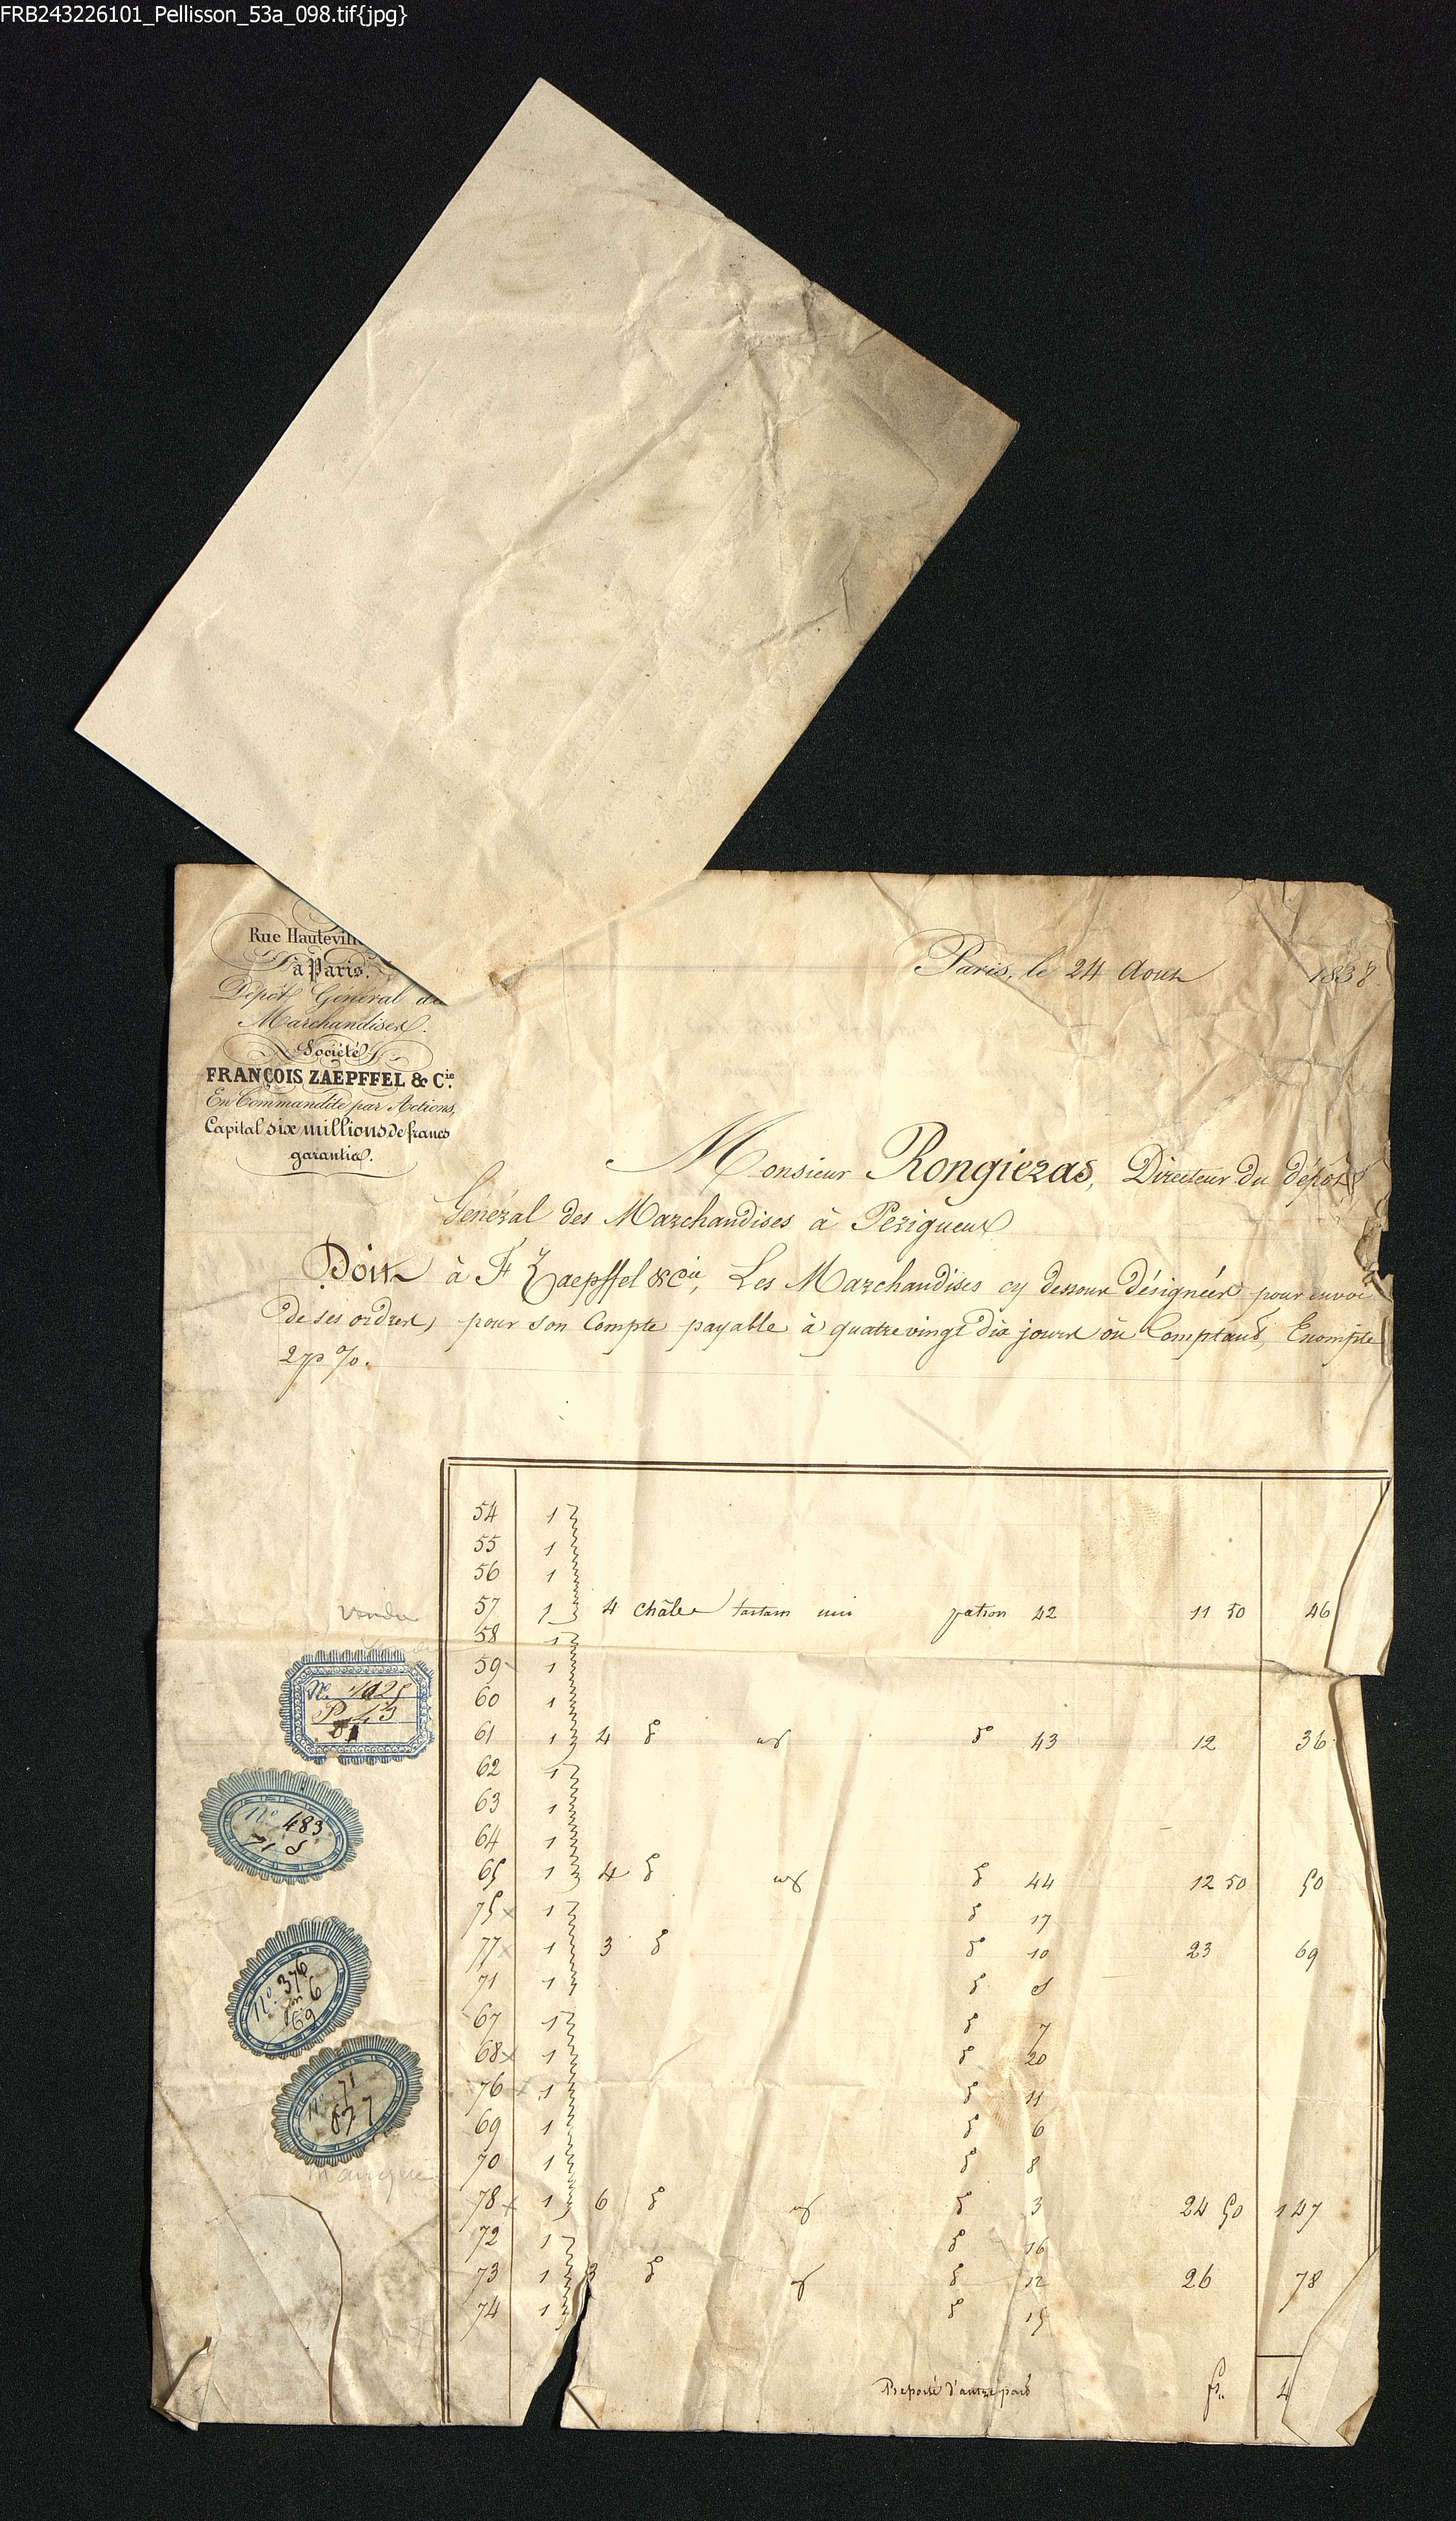 FRB243226101_Pellisson_53a_098.tif{jpg}
Rue Hauteville
à Paris.
Dépôt Général de
Marchandises.
Société
FRANÇOIS ZAEPFFEL & Cie.
En Commandite par Actions,
Capital six millions de francs
garantis.
Paris, le 24 Aout 1838
Monsieur Rongiezas, Directeur du dépôt
Général des Marchandises à Perigueux
Doit à F Zaepffel & Cie, Les Marchandises cy dessous désignées pour envoi
de ses ordres, pour son Compte payable à quatre vingt dix jours ou Comptant, Escompte
2 p %.
54 1
55 1
56 1
vendu 57 1 4 châles tartam uni 42 11 50 46
58 1
59 1
60 1
61 1 4 do do 43 12 36
62 1
63 1
64 1
65 1 4 do do 44 12 50 50
75 x 1 do 17
77 x 1 3 do do 10 23 69
71 1 do
67 1 do 7
68 x 1 do 20
76 x 1 do 11
69 1 do 6
70 1 do 8
78 x 1 6 do do 3 24 50 147
72 1 do 16
73 1 3 do do 12 26 78
74 1 do 15
Reporté d'autre part fr. 4
N. 1025
P. 43
No. 483
71
No. 376
6
69
No. 71
manque